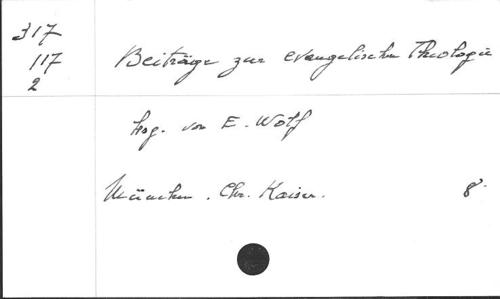 317
117
2
Beiträge zur evangelischen Theologie
hsg. von E. Wolf
München. Chr. Kaiser. 8°